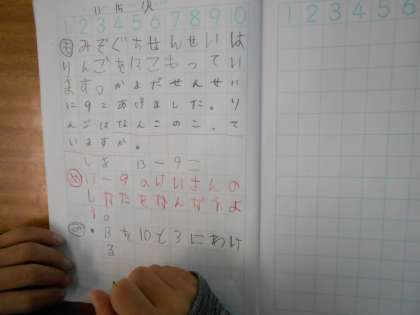 1 2 3 4 5 6 7 8 9 10
1 2 3 4 5 6
みぞぐちせんせいは
りんごを13こもってい
ます。かまだせんせい
に9こあげました。り
んごはなんこのこって
いますか。
しき 13-9=
13-9のけいさんの
しかたをかんがえよ
う。
・13を10と3にわけ
る